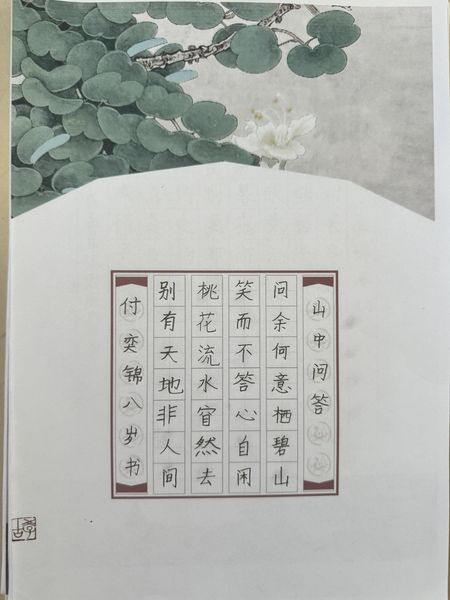 山中问答
问余何意栖碧山
笑而不答心自闲
桃花流水窅然去
别有天地非人间
付奕锦八岁书